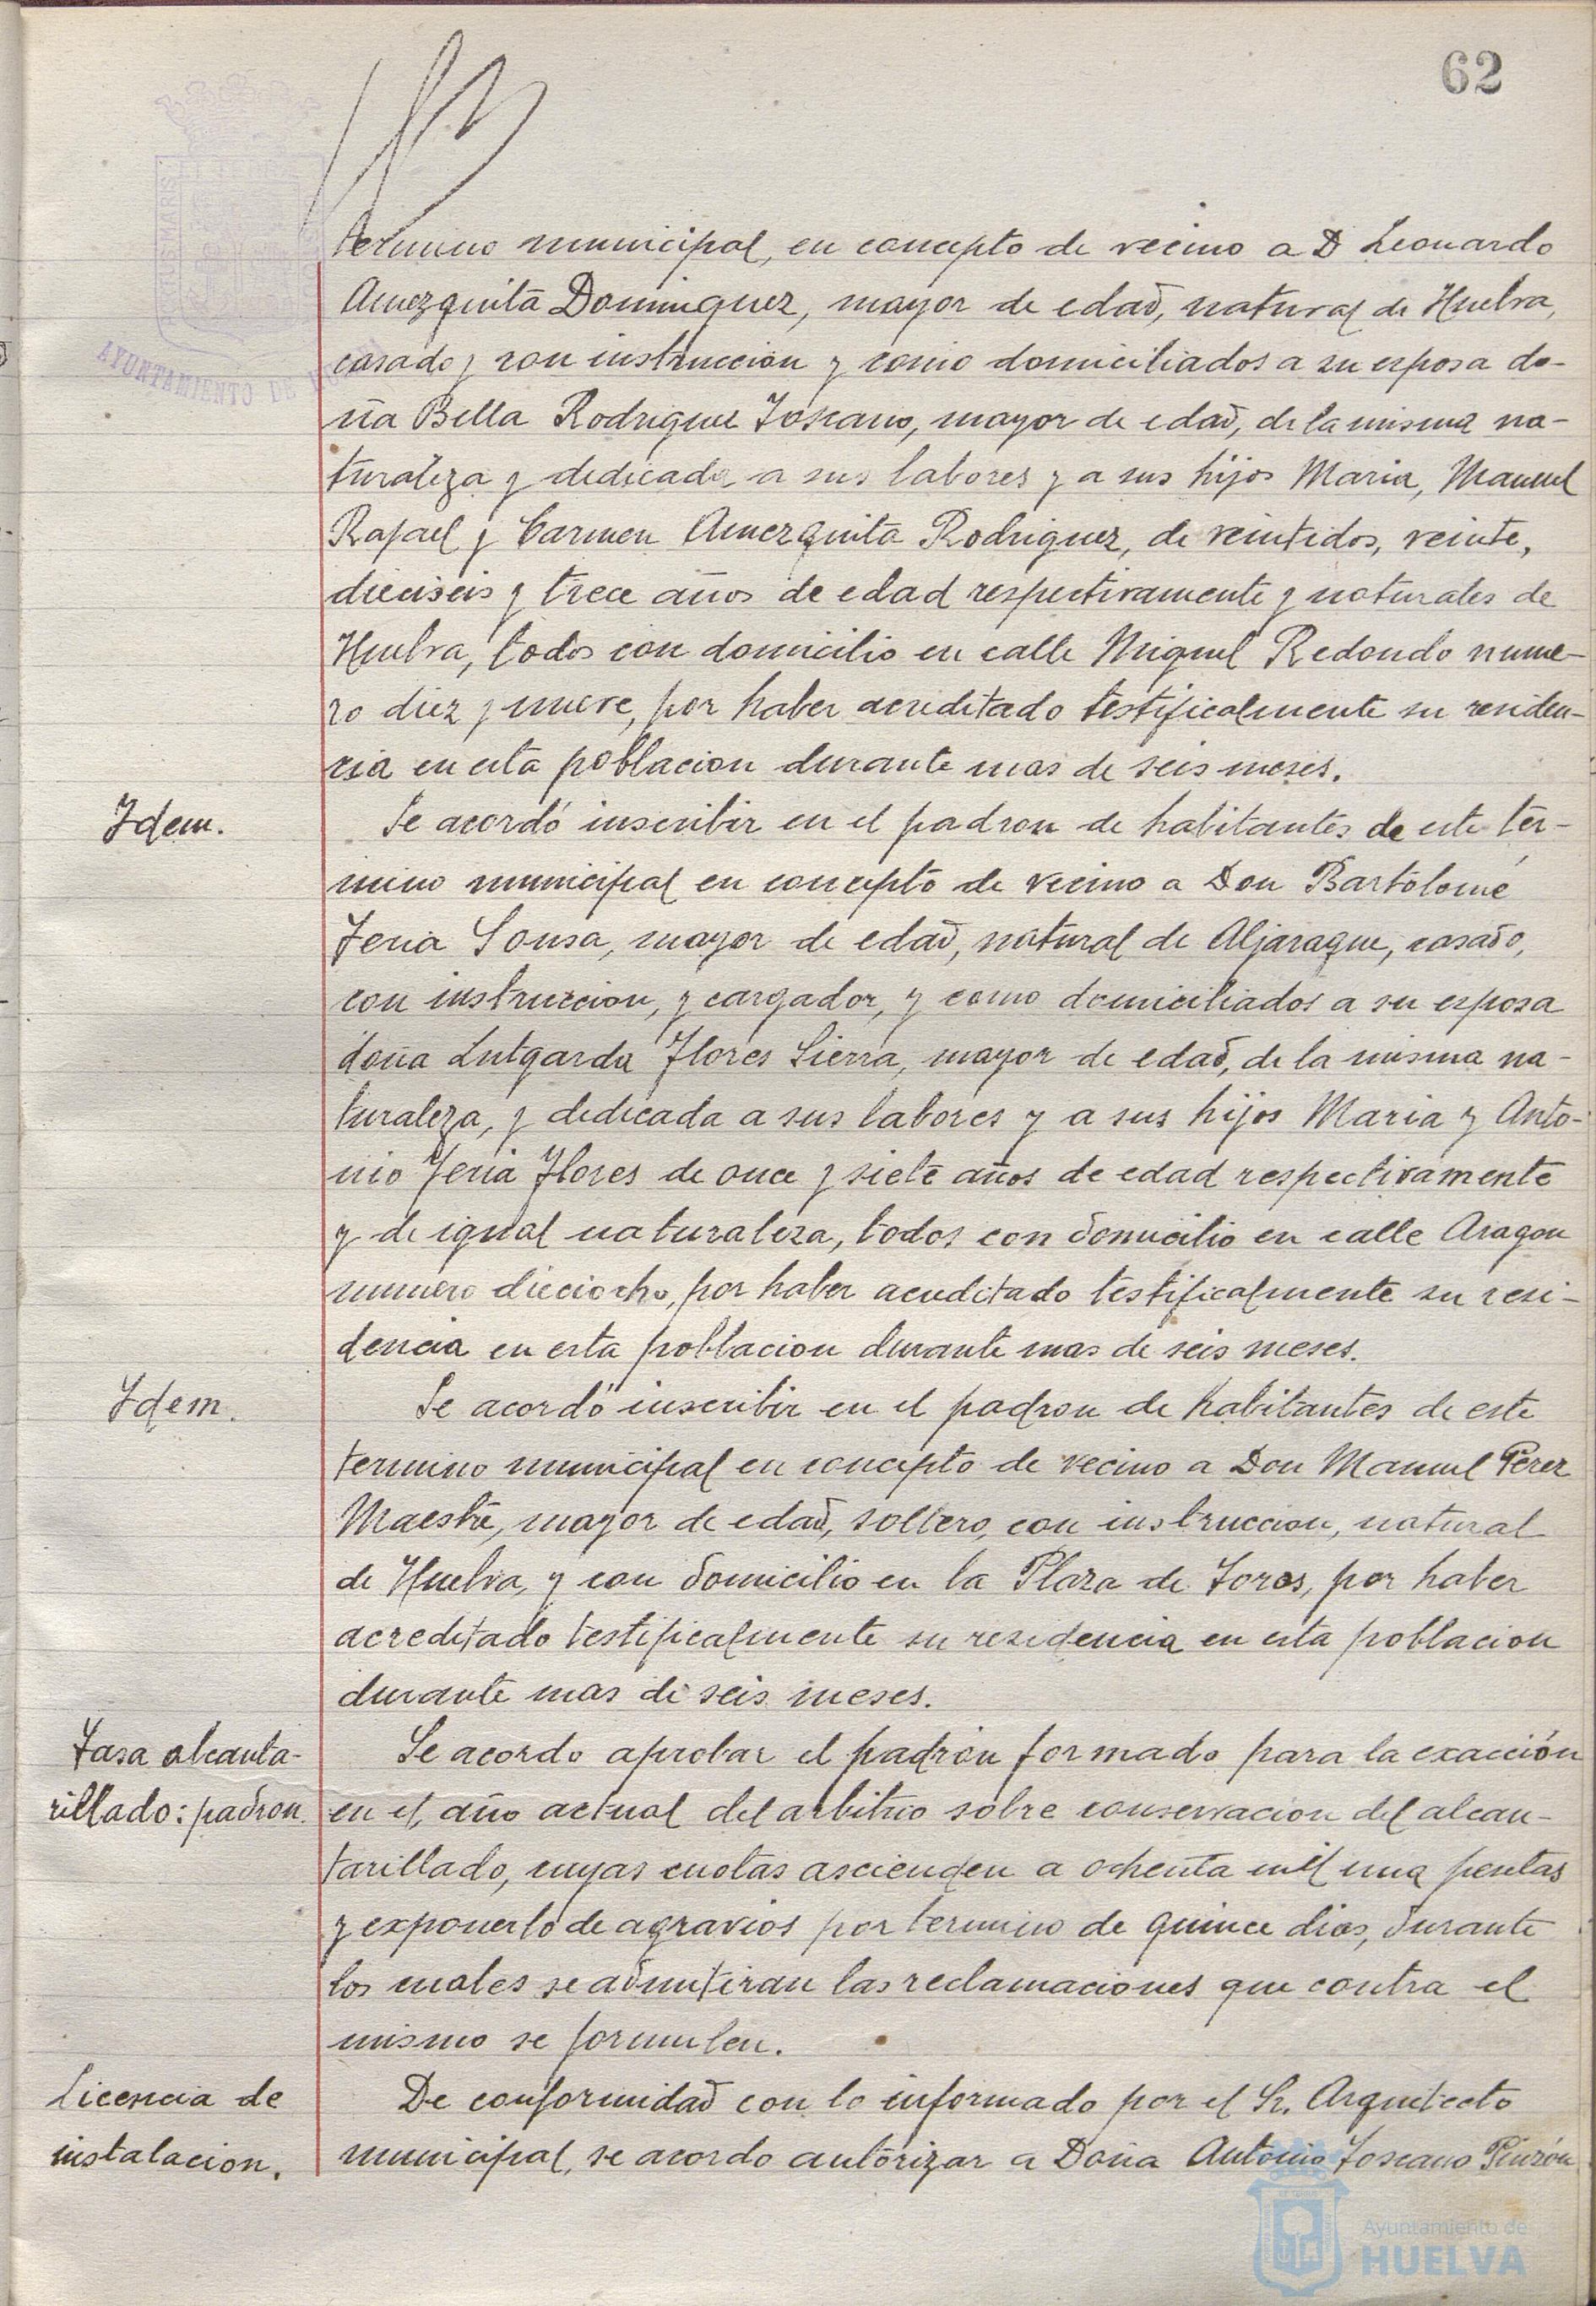 62
termino municipal, en concepto de vecino a D Leonardo
Amezquita Dominguez, mayor de edad, natural de Huelva,
casado y con instruccion y como domiciliados a su esposa do-
ña Bella Rodriguez Toscano, mayor de edad, de la misma na-
turaleza y dedicada a sus labores y a sus hijos Maria, Manuel
Rafael y Carmen Amezquita Rodriguez, de veintidos, veinte,
dieciseis y trece años de edad respectivamente y naturales de
Huelva, todos con domicilio en calle Miguel Redondo nume-
ro diez y nueve, por haber acreditado testificalmente su residen-
cia en esta poblacion durante mas de seis meses.
Idem.
Se acordó inscribir en el padron de habitantes de este ter-
mino municipal en concepto de vecino a Don Bartolomé
Feria Sousa, mayor de edad, natural de Aljaraque, casado,
con instruccion, y cargador, y como domiciliados a su esposa
doña Lutgarda Flores Sierra, mayor de edad, de la misma na-
turaleza, y dedicada a sus labores y a sus hijos Maria y Anto-
nio Feria Flores de once y siete años de edad respectivamente
y de igual naturaleza, todos con domicilio en calle Aragon
numero dieciocho, por haber acreditado testificalmente su resi-
dencia en esta poblacion durante mas de seis meses.
Idem.
Se acordó inscribir en el padron de habitantes de este
termino municipal en concepto de vecino a Don Manuel Perez
Maestre, mayor de edad, soltero, con instruccion, natural
de Huelva y con domicilio en la Plaza de Toros, por haber
acreditado testificalmente su residencia en esta poblacion
durante mas de seis meses.
Tasa alcanta-
rillado: padron.
Se acordo aprobar el padrón formado para la exacción
en el año actual del arbitrio sobre conservacion del alcan-
tarillado, cuyas cuotas ascienden a ochenta mil una pesetas
y exponerlo de agravios por termino de quince dias, durante
los cuales se admitiran las reclamaciones que contra el
mismo se formulen.
Licencia de
instalacion.
De conformidad con lo informado por el Sr. Arquitecto
municipal, se acordo autorizar a Doña Antonia Toscano Pinzón
AYUNTAMIENTO DE
Ayuntamiento de
HUELVA